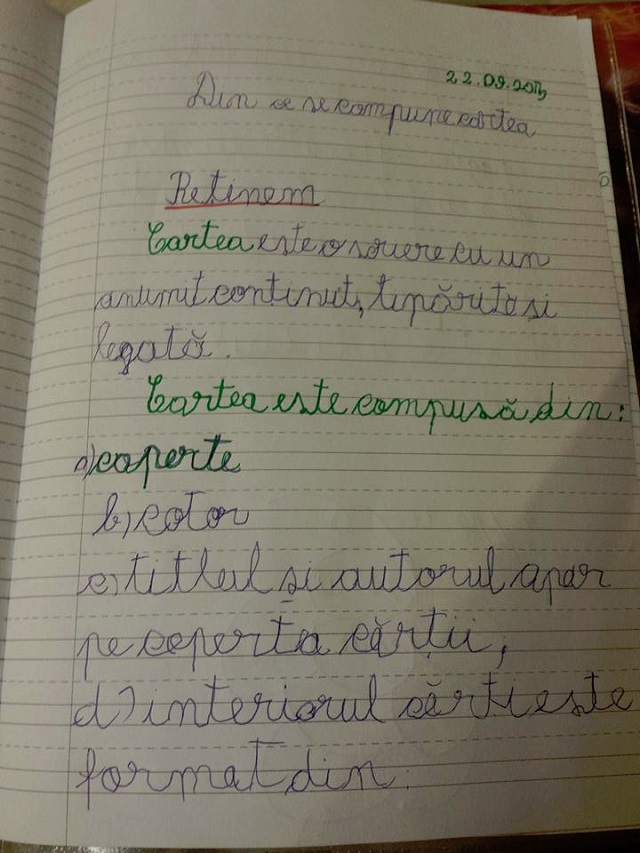 22.09.2015
Din ce se compune cartea
Retinem
Cartea este o scriere cu un
anumit continut, tipărită si
legată.
Cartea este compusă din:
a) coperte
b) cotor
c) titlul și autorul apar
pe coperta cărții,
d) interiorul cărti este
format din: